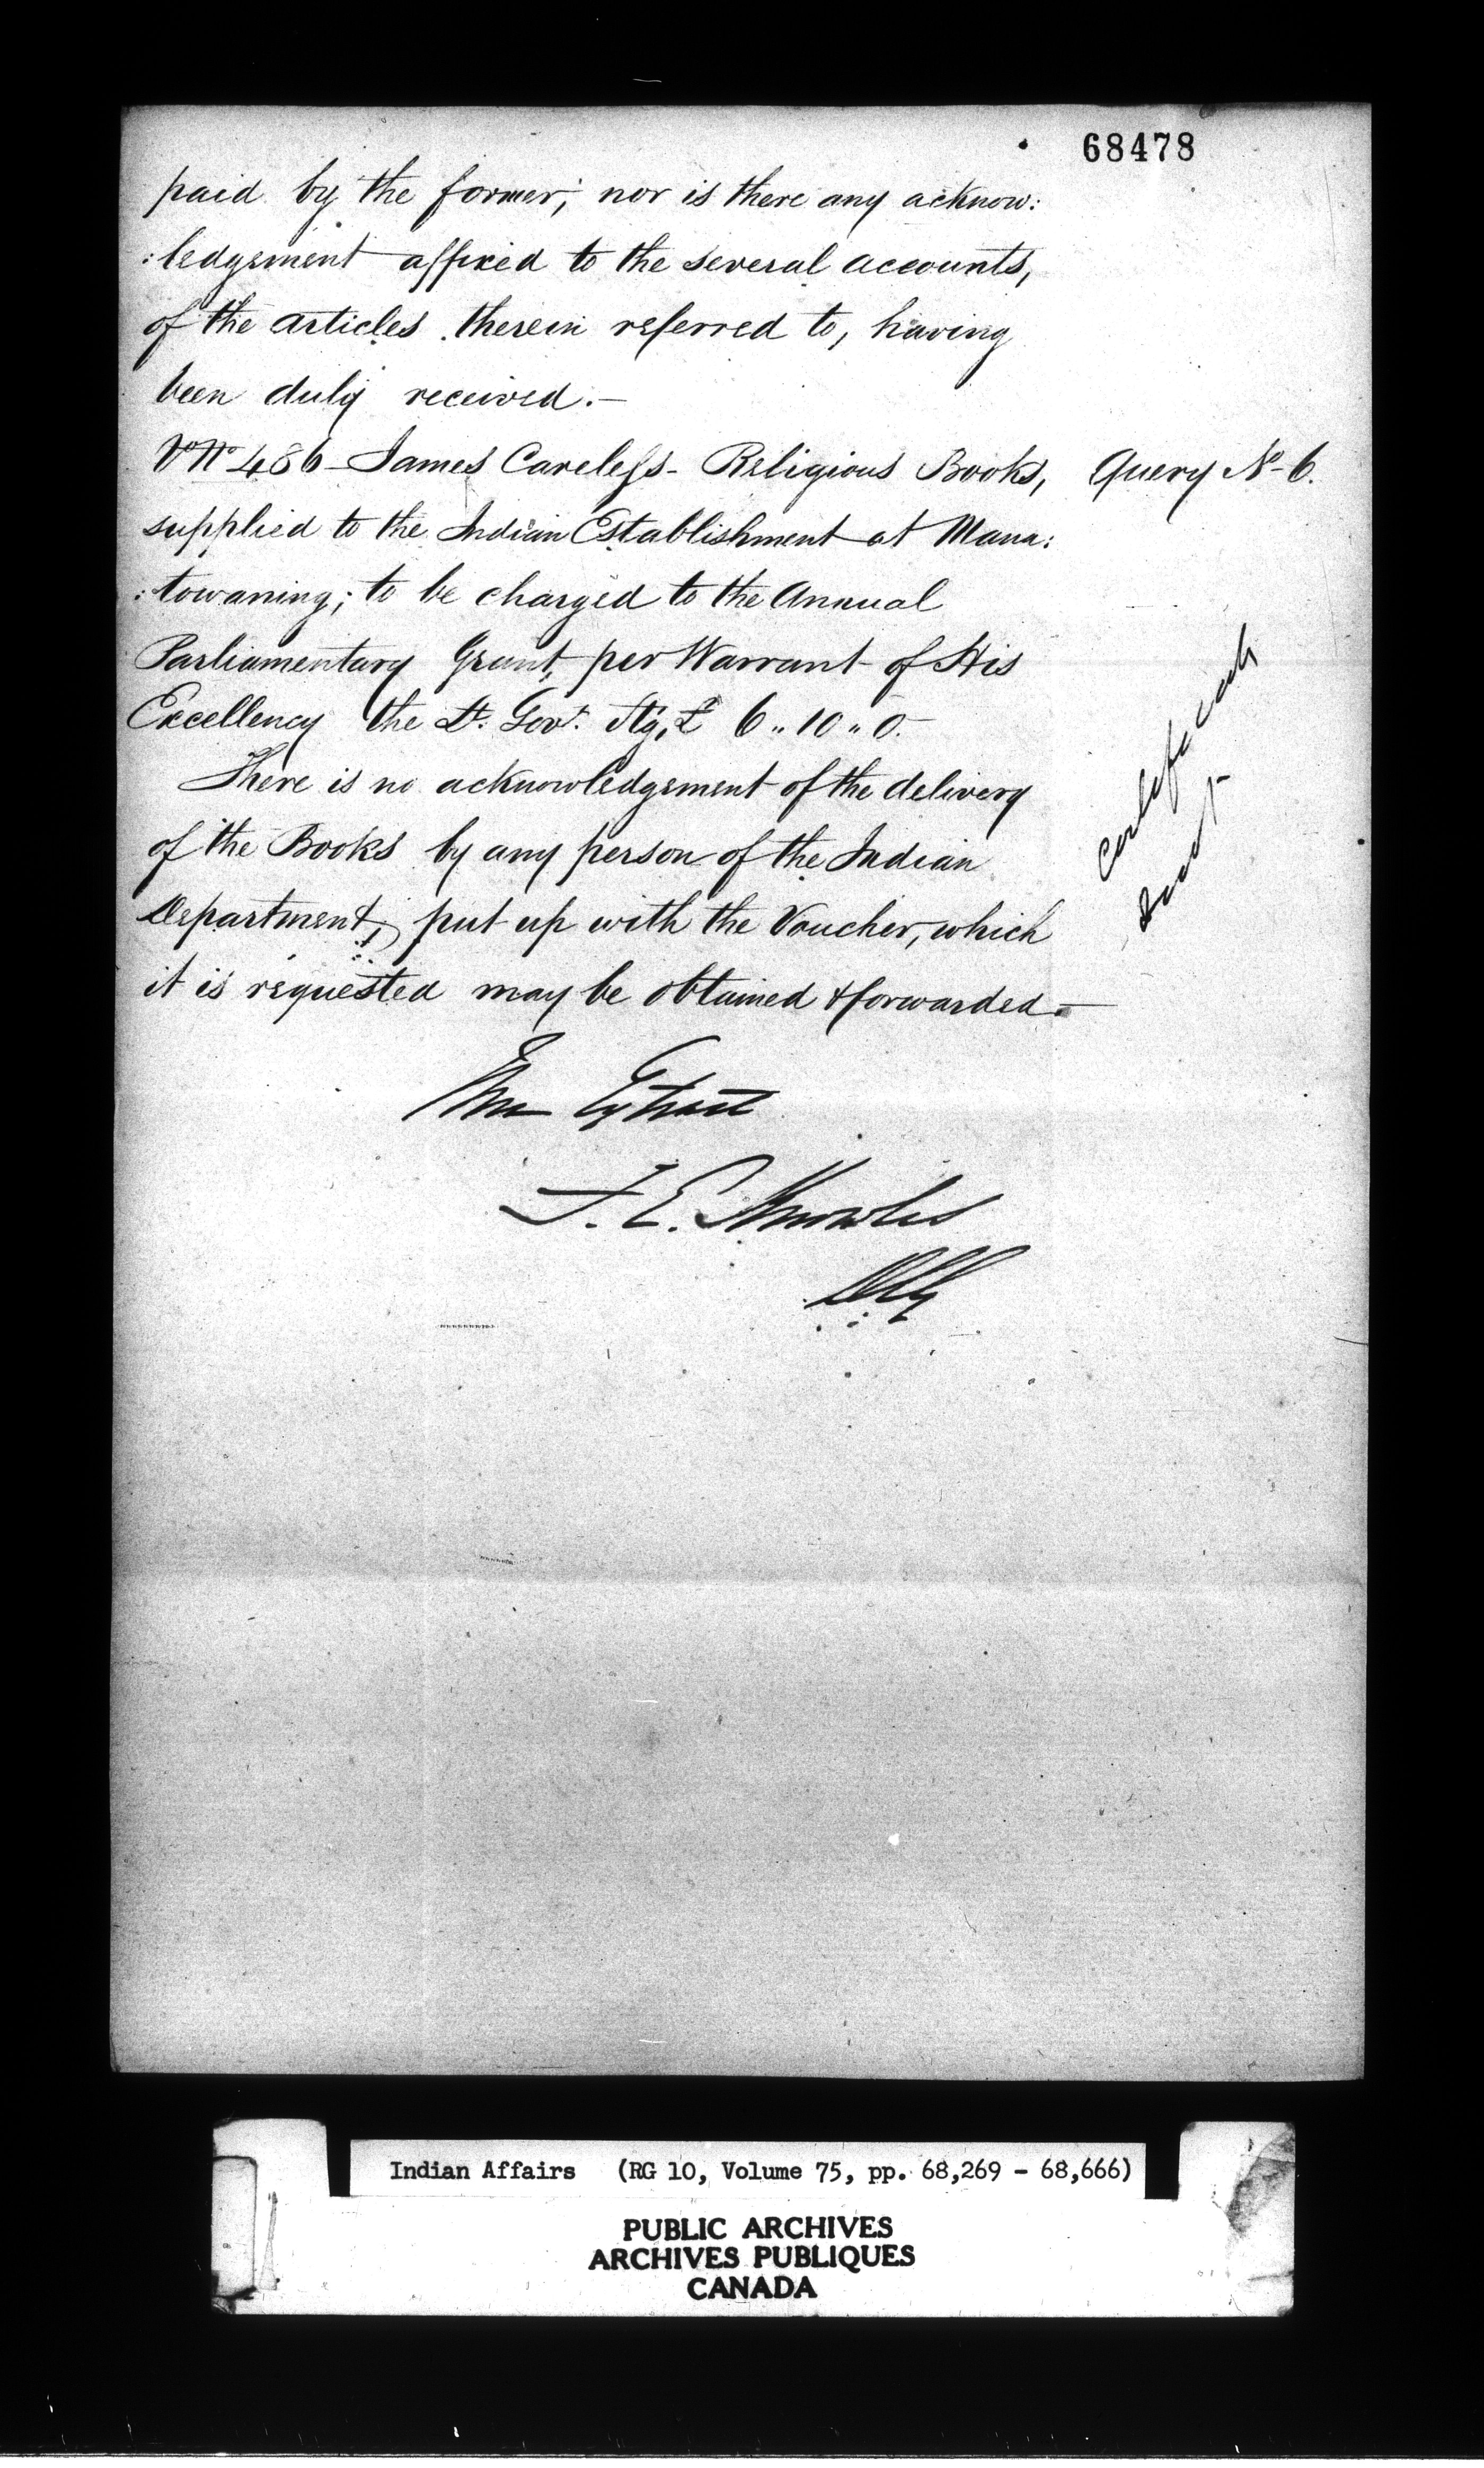 68478
paid by the former; nor is there any acknow:
:ledgement affixed to the several accounts,
of the articles therein referred to, having
been duly received.—
Vo No 486 - James Careless - Religious Books, Query No 6.
supplied to the Indian Establishment at Mana:
:towaning; to be charged to the Annual
Parliamentary Grant, per Warrant of His
Excellency the Lt. Govr. Stg. £ 6 " 10 " 0.
There is no acknowledgement of the delivery
of the Books by any person of the Indian
Department, put up with the Voucher, which
it is requested may be obtained & forwarded.—
Certificate
True Extract
J. E. Knowles
Indian Affairs (RG 10, Volume 75, pp. 68,269 - 68,666)
PUBLIC ARCHIVES
ARCHIVES PUBLIQUES
CANADA